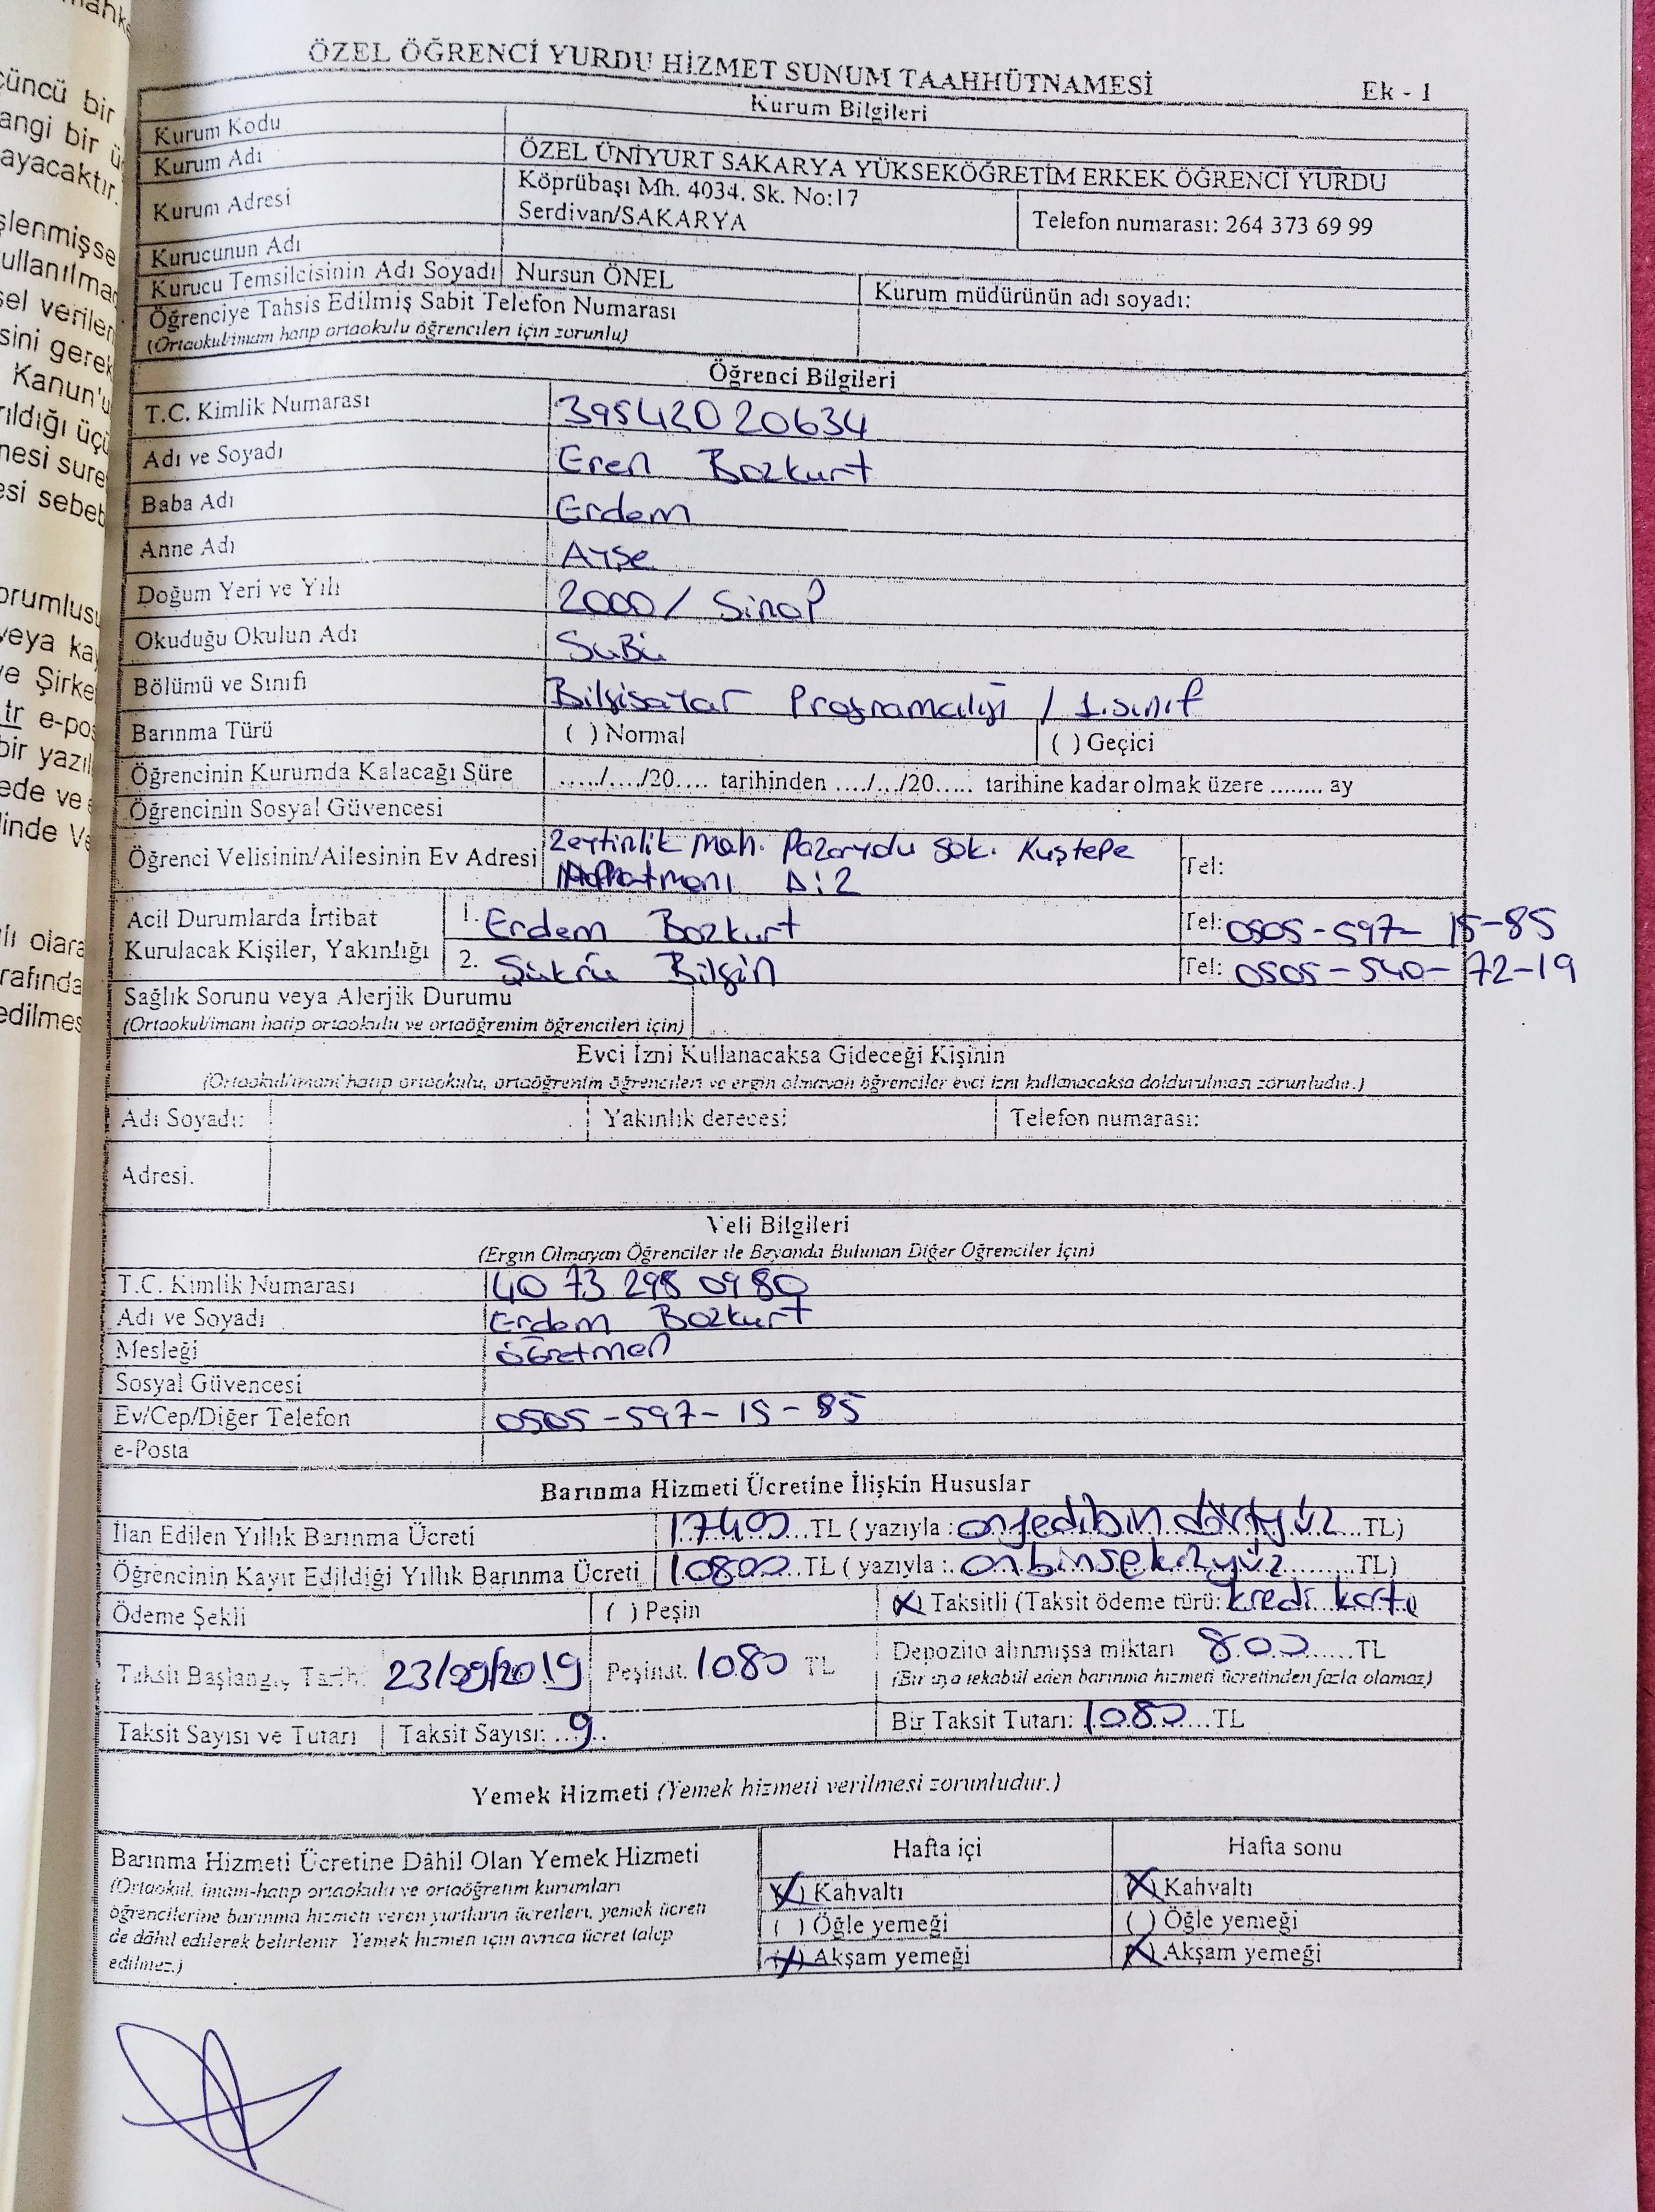 mahke
çüncü bir
angi bir ü
ayacaktır.
şlenmişse
ullanılma
sel verile
sini gerek
Kanun'u
rıldığı üçü
mesi sure
esi sebeb
orumlusu
veya ka
ve Şirke
tr e-pos
bir yazıl
ede ve
linde Ve
olara
rafında
edilmes
ÖZEL ÖĞRENCİ YURDU HİZMET SUNUM TAAHHÜTNAMESİ
Ek - 1
Kurum Bilgileri
Kurum Kodu
Kurum Adı ÖZEL ÜNİYURT SAKARYA YÜKSEKÖĞRETİM ERKEK ÖĞRENCİ YURDU
Kurum Adresi Köprübaşı Mh. 4034. Sk. No:17
Serdivan/SAKARYA Telefon numarası: 264 373 69 99
Kurucunun Adı
Kurucu Temsilcisinin Adı Soyadı Nursun ÖNEL Kurum müdürünün adı soyadı:
Öğrenciye Tahsis Edilmiş Sabit Telefon Numarası
(Ortaokul/imam hatip ortaokulu öğrencileri için zorunlu)
Öğrenci Bilgileri
T.C. Kimlik Numarası 39542020634
Adı ve Soyadı Eren Bozkurt
Baba Adı Erdem
Anne Adı Ayşe
Doğum Yeri ve Yılı 2000 / Sinop
Okuduğu Okulun Adı SuBü
Bölümü ve Sınıfı Bilgisayar Programcılığı / 1.sınıf
Barınma Türü ( ) Normal ( ) Geçici
Öğrencinin Kurumda Kalacağı Süre ...../..../20.... tarihinden ..../.../20..... tarihine kadar olmak üzere ........ ay
Öğrencinin Sosyal Güvencesi
Öğrenci Velisinin/Ailesinin Ev Adresi Zeytinlik Mah. Pazaryolu Sok. Kuştepe
D:2 Tel:
Acil Durumlarda İrtibat 1. Erdem Bozkurt Tel: 0505-597-15-85
Kurulacak Kişiler, Yakınlığı 2. Şükrü Bilgin Tel: 0505-540-72-19
Sağlık Sorunu veya Alerjik Durumu
(Ortaokul/imam hatip ortaokulu ve ortaöğrenim öğrencileri için)
Evci İzni Kullanacaksa Gideceği Kişinin
(Ortaokul/imam hatip ortaokulu, ortaöğrenim öğrencileri ve ergin olmayan öğrenciler evci izni kullanacaksa doldurulması zorunludur.)
Adı Soyadı: Yakınlık derecesi: Telefon numarası:
Adresi.
Veli Bilgileri
(Ergin Olmayan Öğrenciler ile Beyanda Bulunan Diğer Öğrenciler İçin)
T.C. Kimlik Numarası 40 73 298 0980
Adı ve Soyadı Erdem Bozkurt
Mesleği Öğretmen
Sosyal Güvencesi
Ev/Cep/Diğer Telefon 0505-597-15-85
e-Posta
Barınma Hizmeti Ücretine İlişkin Hususlar
İlan Edilen Yıllık Barınma Ücreti 17400...TL ( yazıyla : onyedibin dörtyüz...TL)
Öğrencinin Kayıt Edildiği Yıllık Barınma Ücreti 10800...TL ( yazıyla :. onbinsekizyüz.........TL)
Ödeme Şekli ( ) Peşin (X) Taksitli (Taksit ödeme türü: kredi kartı
Taksit Başlangıç Tarihi 23/09/2019 Peşinat. 1080 TL Depozito alınmışsa miktarı 800......TL
(Bir aya tekabül eden barınma hizmeti ücretinden fazla olamaz)
Taksit Sayısı ve Tutarı Taksit Sayısı: ..9.. Bir Taksit Tutarı: 1080....TL
Yemek Hizmeti (Yemek hizmeti verilmesi zorunludur.)
Barınma Hizmeti Ücretine Dâhil Olan Yemek Hizmeti
(Ortaokul, imam-hatip ortaokulu ve ortaöğretim kurumları
öğrencilerine barınma hizmeti veren yurtların ücretleri, yemek ücreti
de dâhil edilerek belirlenir. Yemek hizmeti için ayrıca ücret talep
edilmez.)
Hafta içi Hafta sonu
(X) Kahvaltı (X) Kahvaltı
( ) Öğle yemeği ( ) Öğle yemeği
(X) Akşam yemeği (X) Akşam yemeği